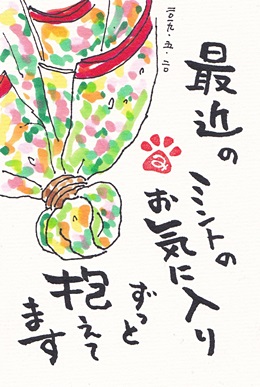 最近の
ミントの
お気に入り
ずっと
抱えて
ます
二〇一九・五・二〇
み